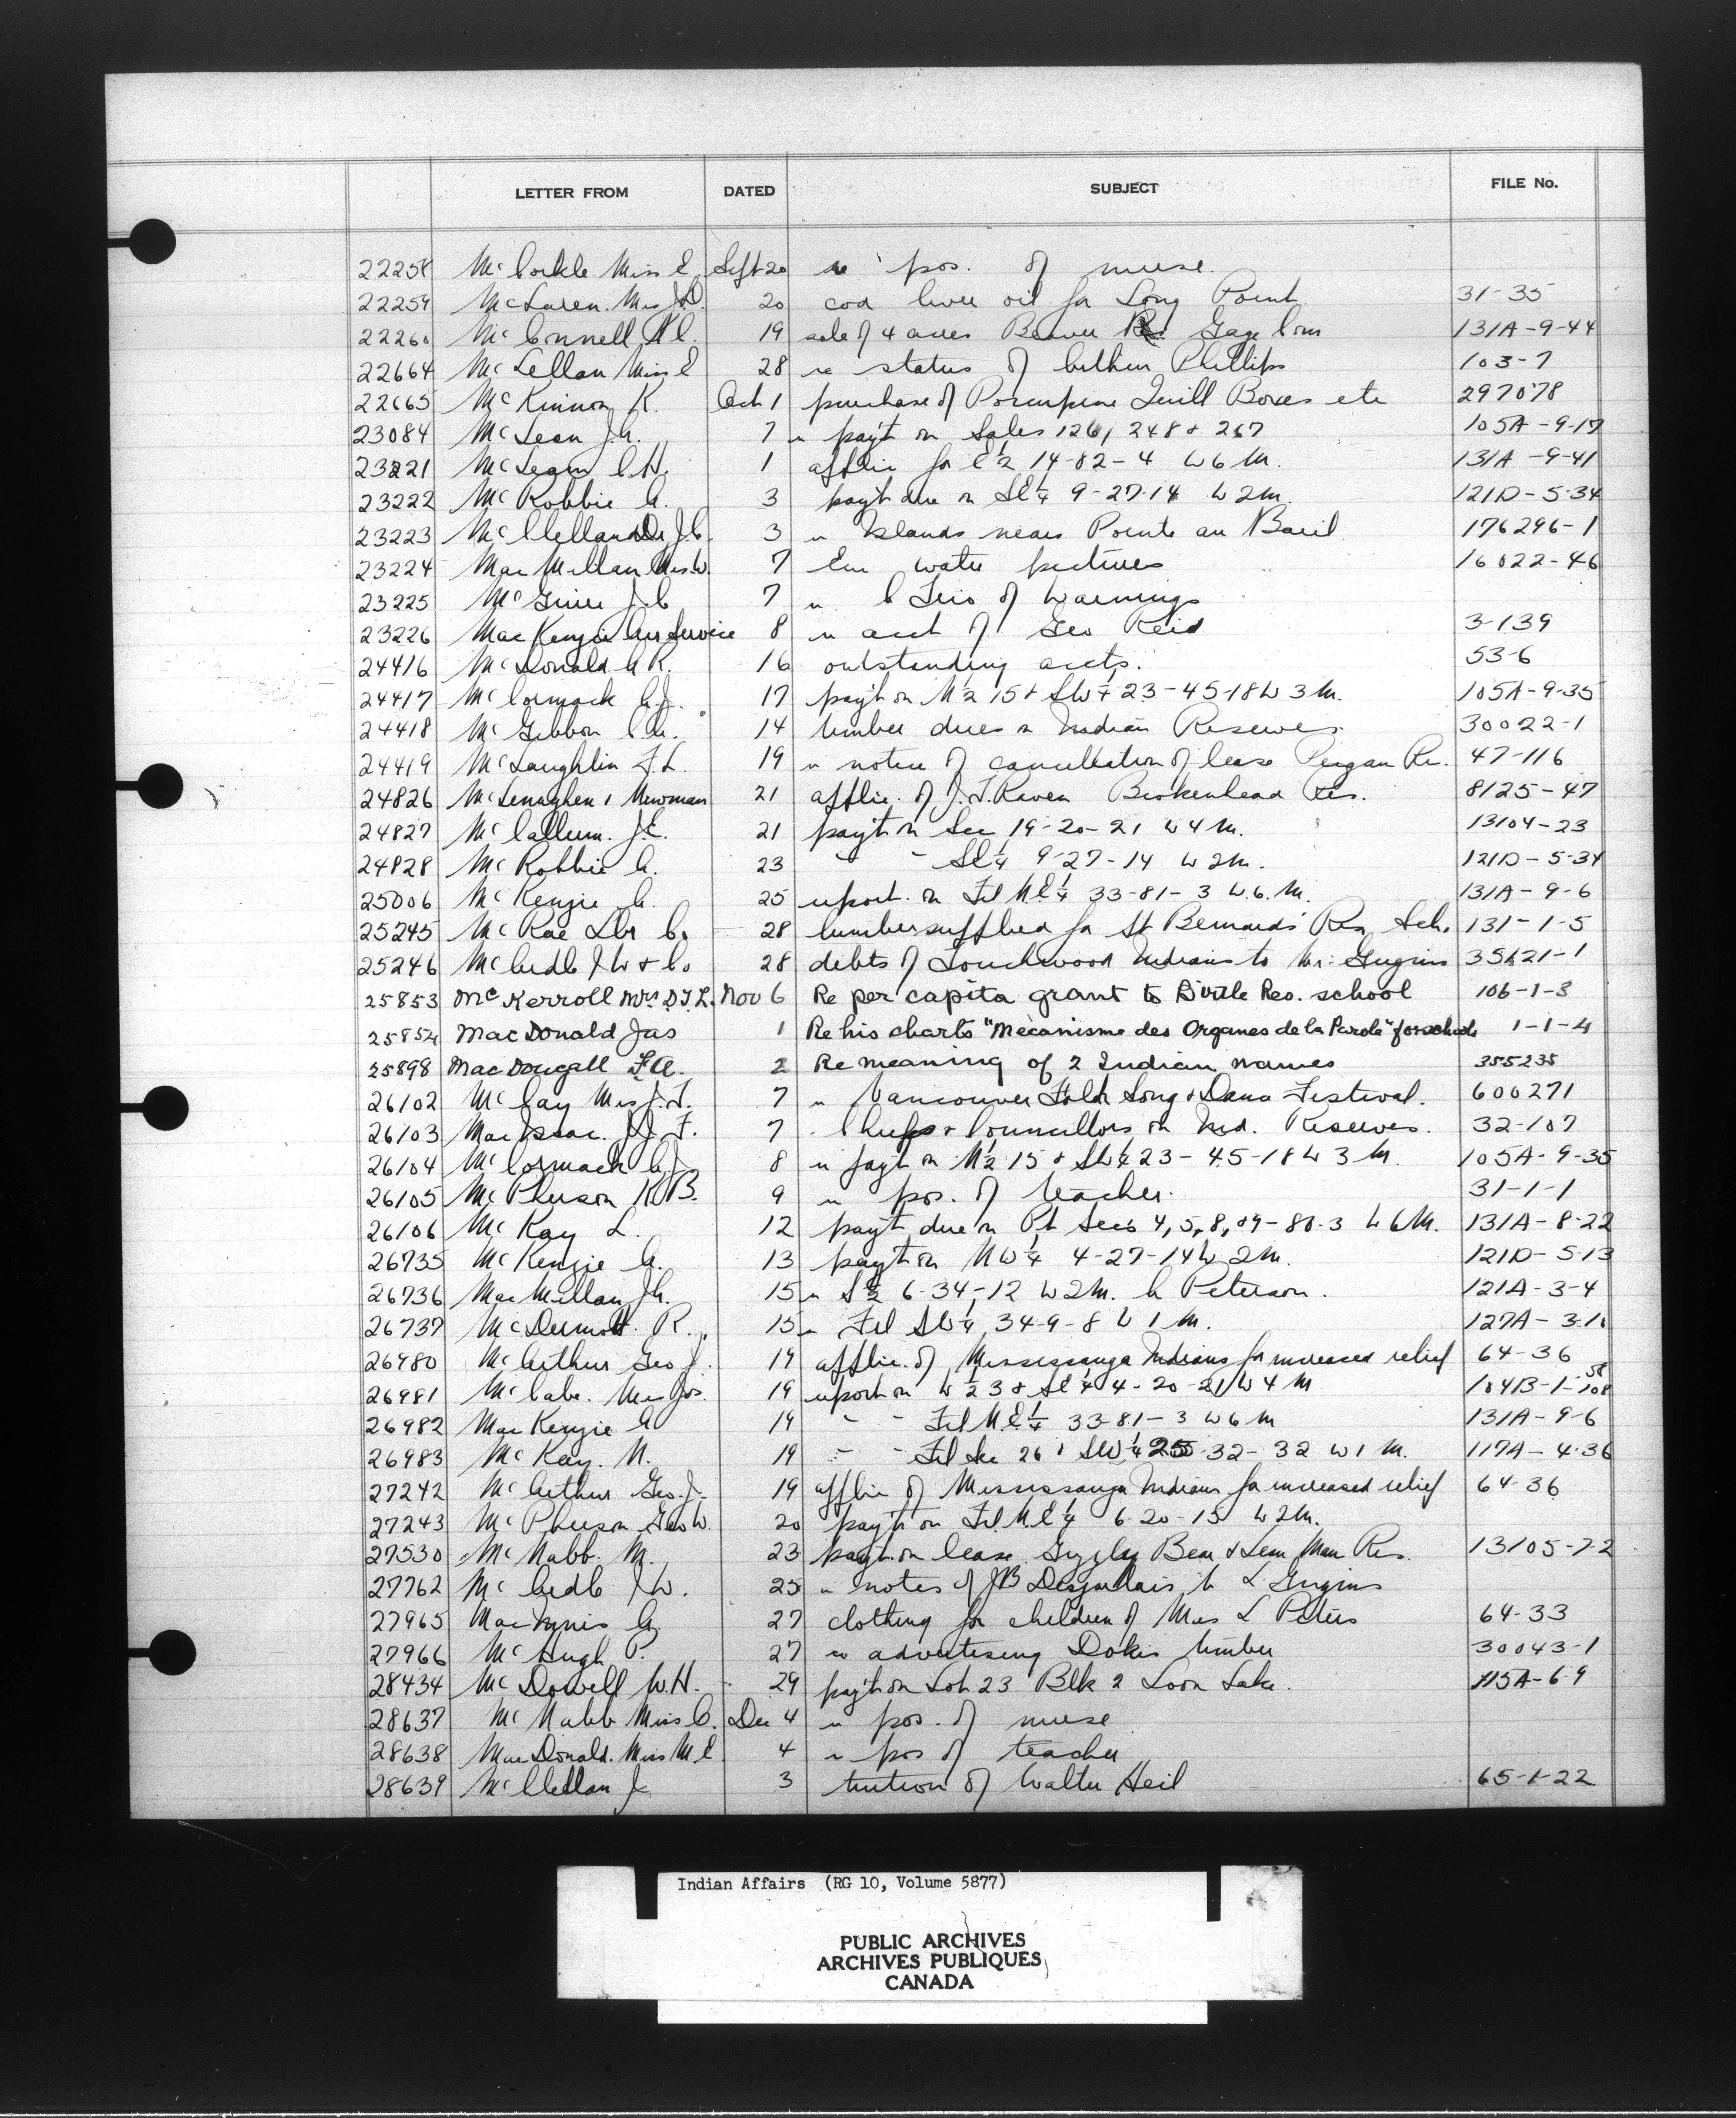 LETTER FROM DATED SUBJECT FILE No.
22258 McCorkle Miss E Sept 20 re pos. of nurse.
22259 McLaren. Mrs J.D. 20 cod liver oil for Long Point 31-35
22260 McConnell N C. 19 sale of 4 acres Beaver Res. Gage Com 131A-9-44
22664 McLellan Miss E 28 re status of Phillips 103-7
22665 McKinnon K. Oct 1 purchase of Porcupine Quill Boxes etc 297078
23084 McLean J.A. 7 re pay't on Sales 126, 248 & 267 105A-9-17
23221 McLean C.H. 1 applic for E½ 14-82-4 W6M. 131A-9-41
23222 McRobbie A. 3 pay't due on SE¼ 9-27-14 W2M. 121D-5-34
23223 McClelland Dr J.C. 3 re Islands near Pointe au Baril 176296-1
23224 MacMillan Mrs. W. 7 water pictures 16022-46
23225 J.C 7 re of Warnings
23226 MacKenzie Air Service 8 re acct of Geo Reid 3-139
24416 McDonald A R. 16 outstanding accts. 53-6
24417 McCormack A.J. 17 pay't on N½ 15 & SW¼ 23-45-18 W3M. 105A-9-35
24418 McGibbon C.A. 14 timber dues on Indian Reserves. 30022-1
24419 McLaughlin F.L. 19 re notice of cancellation of lease Peigan Res. 47-116
24826 McLenaghen & Newman 21 applic. of J.T. Raven Brokenhead Res. 8125-47
24827 McCallum. J.E. 21 pay't on Sec 19-20-21 W4M. 13104-23
24828 McRobbie A. 23 " " SE¼ 9-27-14 W2M. 121D-5-34
25006 McKenzie A. 25 report on Fil NE¼ 33-81-3 W.6.M. 131A-9-6
25245 McRae Lbr Co 28 lumber supplied for St Bernards Res. Sch. 131-1-5
25246 McCurdle J W & Co 28 debts of Touchwood Indians to Mr. 35121-1
25853 McKerroll Mrs D.T.L. Nov 6 Re per capita grant to Birtle Res. school 106-1-3
25854 MacDonald Jas 1 Re his charts "Mecanisme des Organes de la Parole" for schools 1-1-4
25898 MacDougall F.A. 2 Re meaning of 2 Indian names 355235
26102 McCay Mrs J.T. 7 re Vancouver Folk Song & Dance Festival. 600271
26103 MacIsaac. J.F. 7 Chiefs & Councillors on Ind. Reserves. 32-107
26104 McCormack A.J. 8 re pay't on N½ 15 & SW¼ 23-45-18 W3M. 105A-9-35
26105 McPherson K.B. 9 re pos. of teacher. 31-1-1
26106 McKay L. 12 pay't due on Pt Secs 4,5,8,&9-80-3 W6M. 131A-8-22
26735 McKenzie A. 13 pay't on NW¼ 4-27-14 W2M. 121D-5-13
26736 MacMillan J.A. 15 re S½ 6-34-12 W2M. C Peterson. 121A-3-4
26737 McDermott. R. 15 re Fil SW¼ 34-9-8 W1M. 127A-3-1
26980 McArthur Geo J. 19 applic. of Mississauga Indians for increased relief 64-36
26981 McCabe. Mrs Jos. 19 report on W½ 3 & SE¼ 4-20-21 W4M 104B-1-108 58
26982 MacKenzie A 19 " " Fil NE¼ 33-81-3 W6M 131A-9-6
26983 McKay. N. 19 " " Fil Sec 26 & SW¼ 25-32-32 W1M. 117A-4-36
27242 McArthur Geo. J. 19 applic of Mississauga Indians for increased relief 64-36
27243 McPherson Geo W. 20 pay't on Fil. NE¼ 6-20-15 W2M.
27530 McNabb. M. 23 pay't on lease Grizzly Bear & Lean Man Res. 13105-72
27762 J.W. 25 re notes of JB Desjarlais to L
27965 MacInnis G. 27 clothing for children of Mrs L Peters 64-33
27966 McHugh P. 27 re advertising Dokis timber 30043-1
28434 McDowell W.H. 29 pay't on Lot 23 Blk 2 Loon Lake. 115A-6-9
28637 McNabb Miss C. Dec 4 re pos. of nurse
28638 MacDonald. Miss M E 4 re pos of teacher
28639 McClellan J. 3 tuition of Walter Heil 65-1-22
Indian Affairs (RG 10, Volume 5877)
PUBLIC ARCHIVES
ARCHIVES PUBLIQUES
CANADA